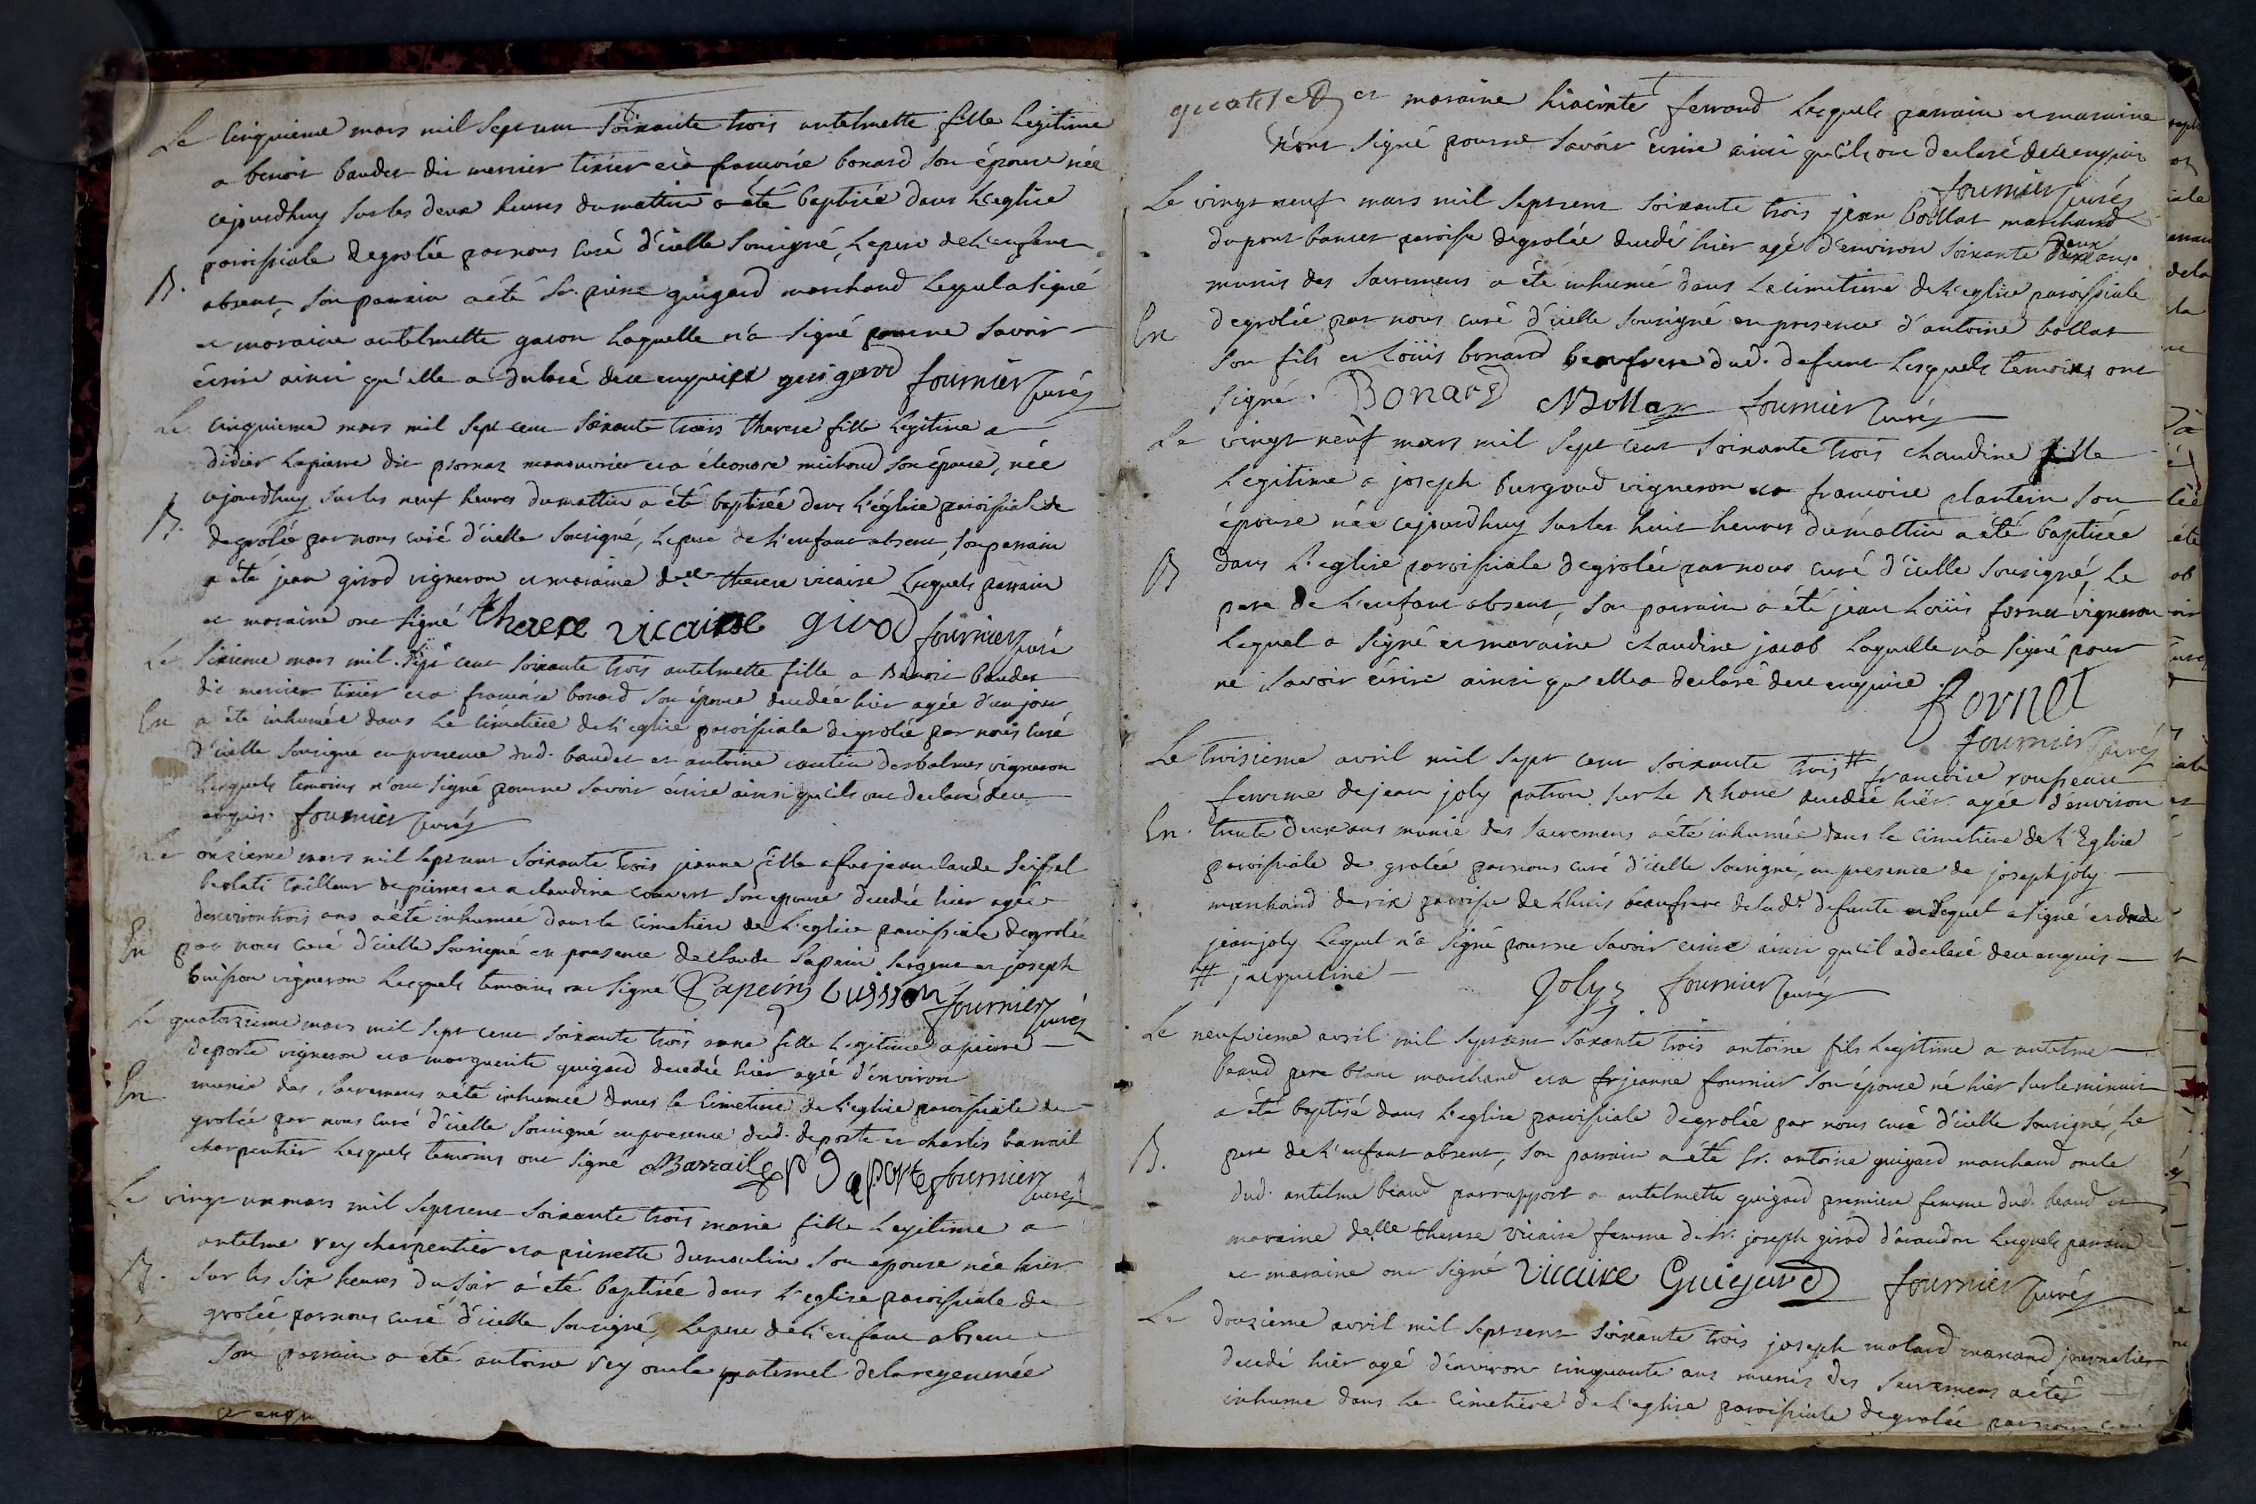 Le cinquieme mars mil sept cent soixante trois antelmette fille legitime
a benoit baudet dit mercier tixier et a francoise bonard son épouse née
cejourdhuy sur les deux heures du mattin a été baptisée dans l'eglise
paroissiale de grolée par nous curé d'icelle sousigné, le pere de l'enfant
B. absent, son parrain a été Sr. pierre guigard marchand lequel a signé
et maraine antelmette gacon laquelle n'a signé pour ne savoir
écrire ainsi qu'elle a declaré de ce enquise guigard fournier curé
Le cinquieme mars mil sept cent soixante trois therese fille legitime a
didier lapierre dit manouvrier et a éleonore michoud son épouse, née
cejourdhuy sur les neuf heures du mattin a été baptisée dans l'église paroissiale de
B. de grolée par nous curé d'icelle sousigné, le pere de l'enfant absent, son parrain
a été jean girod vigneron et maraine delle therese vicaire lesquels parrain
et maraine ont signé therese vicaire girod fournier curé
Le sixieme mars mil sept cent soixante trois antelmette fille a benoit baudet
dit mercier tixier et a francoise bonard son épouse decedée hier agée d'un jour
En a été inhumée dans le cimetiere de l'eglise paroissiale de grolée par nous curé
d'icelle sousigné en presence dud. baudet et antoine des balmes vigneron
lesquels temoins n'ont signé pour ne savoir écrire ainsi qu'ils ont declaré de ce
enquis. fournier curé
Le onzieme mars mil sept cent soixante trois jeanne fille a feu jean claude
tailleur de pierres et a claudine son epouse decedée hier agée
d'environ trois ans a été inhumée dans le cimetiere de l'eglise paroissiale de grolée
En par nous curé d'icelle sousigné en presence de claude sapein sergent et joseph
buisson vigneron lesquels temoins ont signé Sapein buisson fournier curé
Le quatorzieme mars mil sept cent soixante trois anne fille legitime a pierre
deporte vigneron et a marguerite guigard decedée hier agée d'environ
En munie des sacremens a été inhumée dans le cimetiere de l'eglise paroissiale de
grolée par nous curé d'icelle sousigné en presence dud. deporte et charles barrail
charpentier lesquels temoins ont signé Barrail Deporte fournier curé
Le vingt un mars mil sept cent soixante trois marie fille legitime a
antelme rey charpentier et a pierrette dumoulin son epouse née hier
B. sur les six heures du soir a été baptisée dans l'eglise paroissiale de
grolée par nous curé d'icelle sousigné, le pere de l'enfant absent
son parrain a été antoine rey oncle paternel de la regenerée
et maraine hiacinte ferrand lesquels parrain et maraine
n'ont signé pour ne savoir écrire ainsi qu'ils ont declaré de ce enquis
fournier curé
Le vingt neuf mars mil sept cent soixante trois jean bollat marchand
du pont bancet paroisse de grolée decedé hier agé d'environ soixante deux ans
munis des sacremens a été inhumé dans le cimetiere de l'eglise paroissiale
En de grolée par nous curé d'icelle sousigné en presence d'antoine bollat
son fils et loüis bonard beaufrere dud. defunt lesquels temoins ont
signé. Bonard Bollat fournier curé
Le vingt neuf mars mil sept cent soixante trois claudine fille
legitime a joseph burgoud vigneron et a francoise plantein son
épouse née cejourdhuy sur les huit heures du mattin a été baptisée
B dans l'eglise paroissiale de grolée par nous curé d'icelle sousigné, le
pere de l'enfant absent, son parrain a été jean loüis fornet vigneron
lequel a signé et maraine claudine jacob laquelle n'a signé pour
ne savoir écrire ainsi qu'elle a declaré de ce enquise. fornet
fournier curé
Le troisieme avril mil sept cent soixante trois # francoise rousseau
femme de jean joly patron sur le Rhone decedée hier agée d'environ
En. trente deux ans munie des sacremens a été inhumée dans le cimetiere de l'Eglise
paroissiale de grolée par nous curé d'icelle sousigné, en presence de joseph joly
marchand de rix paroisse de Lhuis beaufrere de lad. defunte lequel a signé et dud.
jean joly lequel n'a signé pour ne savoir ecrire ainsi qu'il a declaré de ce enquis
# jacqueline Joly fournier curé
Le neufvieme avril mil sept cent soixante trois antoine fils legitime a antelme
beaud pere blanc marchand et a jeanne fournier son épouse né hier sur le minuit
a été baptisé dans l'eglise paroissiale de grolée par nous curé d'icelle sousigné, le
B. pere de l'enfant absent, son parrain a été Sr. antoine guigard marchand oncle
dud. antelme beaud par rapport a antelmette guigard premiere femme dud. beaud et
maraine delle therese vicaire femme de Sr. joseph girod lesquels parrain
et maraine ont signé vicaire Guigard fournier curé
Le douzieme avril mil sept cent soixante trois joseph molard journalier
decedé hier agé d'environ cinquante ans munis des sacremens a été
inhumé dans le cimetiere de l'eglise paroissiale de grolée par nous curé